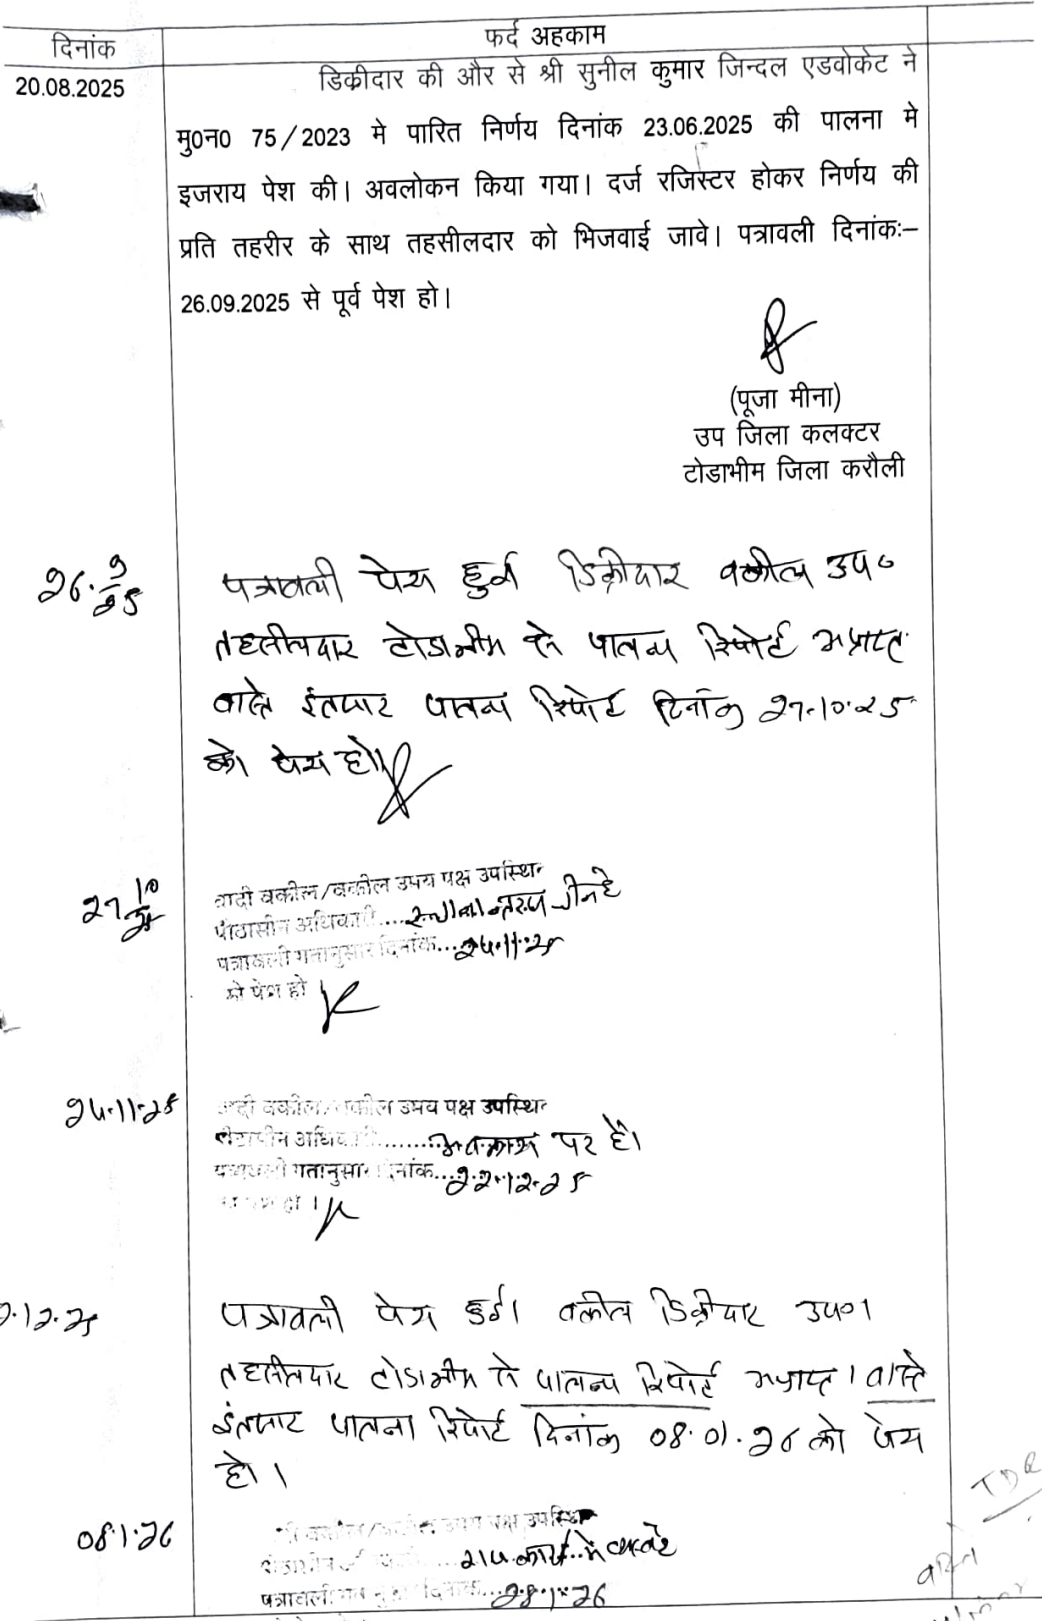 दिनांक
फर्द अहकाम
20.08.2025
डिक्रीदार की और से श्री सुनील कुमार जिन्दल एडवोकेट ने
मु0न0 75/2023 मे पारित निर्णय दिनांक 23.06.2025 की पालना मे
इजराय पेश की। अवलोकन किया गया। दर्ज रजिस्टर होकर निर्णय की
प्रति तहरीर के साथ तहसीलदार को भिजवाई जावे। पत्रावली दिनांकः–
26.09.2025 से पूर्व पेश हो।
(पूजा मीना)
उप जिला कलक्टर
टोडाभीम जिला करौली
26.9/25
पत्रावली पेश हुई डिक्रीदार वकील उप०
तहसीलदार टोडाभीम से पालना रिपोर्ट अप्राप्त
वास्ते इंतजार पालना रिपोर्ट दिनांक 27.10.25
को पेश हो।
27 10/25
वादी वकील/वकील उभय पक्ष उपस्थित
पीठासीन अधिकारी....स्थानान्तरण
पत्रावली गतानुसार दिनांक...24.11.25
को पेश हो
24.11.25
वादी वकील/वकील उभय पक्ष उपस्थित
पीठासीन अधिकारी.......अवकाश पर है।
पत्रावली गतानुसार दिनांक...22.12.25
को पेश हो।
2.12.25
पत्रावली पेश हुई। वकील डिक्रीदार उप०।
तहसीलदार टोडाभीम से पालना रिपोर्ट अप्राप्त। वास्ते
इंतजार पालना रिपोर्ट दिनांक 08.01.26 को पेश
हो।
08.1.26
वकील/वकील उभय पक्ष उपस्थित
राज.कार्य में व्यस्त है
पत्रावली गतानुसार दिनांक...28.1.26
TDR